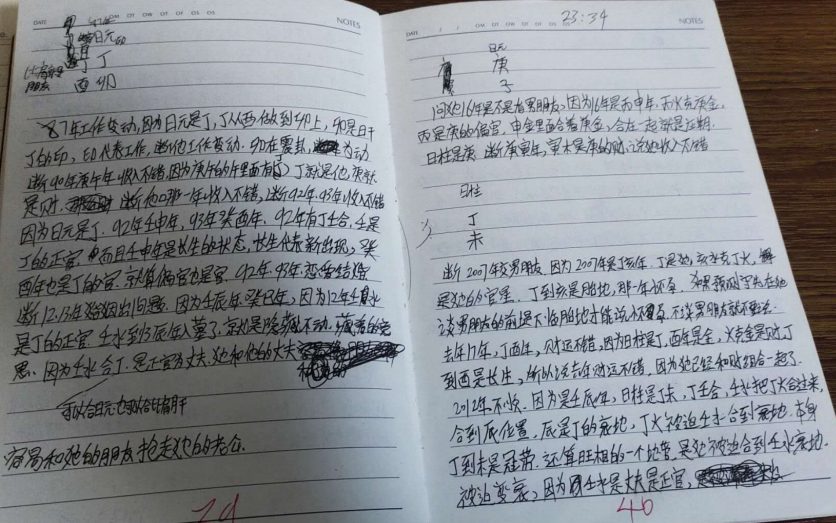 DATE
NOTES
日元
丁
酉 卯
87年工作变动,因为日元是丁,丁从酉做到卯上,卯是日干
丁的印,印代表工作,断他工作变动.卯在震卦,为动
断90年庚午年收入不错,因为庚午的午里面有丁,丁就是他,庚就
是财.断他那一年收入不错,断92年.93年收入不错
因为日元是丁.92年壬申年,93年癸酉年.92年有丁壬合,壬是
丁的正官.而且壬申年是长生的状态,长生代表新出现,癸
酉年也是丁的官.就算偏官也是官.92年.93年恋爱结婚
断12.13年婚姻出问题.因为壬辰年.癸巳年,因为12年壬水
是丁的正官.壬水到辰年入墓了.就是隐藏不动.藏着的意
思.因为壬水合丁.是正官为丈夫.她和他的丈夫
可以合日元也可以合
容易和她的朋友抢走她的老公.
29
DATE
23:34
NOTES
日元
庚
子
问她16年是不是有男朋友,因为16年是丙申年.丙火克庚金,
丙是庚的偏官,申金里面含着庚金,合在一起就是近期.
日柱是庚.断庚寅年,寅木是庚的财.说她收入不错
日柱
丁
未
断2007年交男朋友.因为2007年是丁亥年.丁是她,亥水克丁火,
是她的官星.丁到亥是胎地,那一年怀孕.如果预测字头在她
谈男朋友的前提下临胎地才能说怀孕.不谈男朋友就不要说.
去年17年,丁酉年,财运不错,因为日柱是丁,酉年是金,火克金是财.丁
到酉是长生,所以说去年财运不错.因为她已经和财组合一起了.
2012年不快.因为是壬辰年,日柱是丁未,丁壬合,壬水把丁火合过来,
合到辰位置,辰是丁的衰地,丁火被迫壬水合到衰地.本身
丁到未是冠带.还算旺相的一个地管.是她被迫合到壬水衰地.
被迫变衰,因为壬水是丈夫是正官,
40